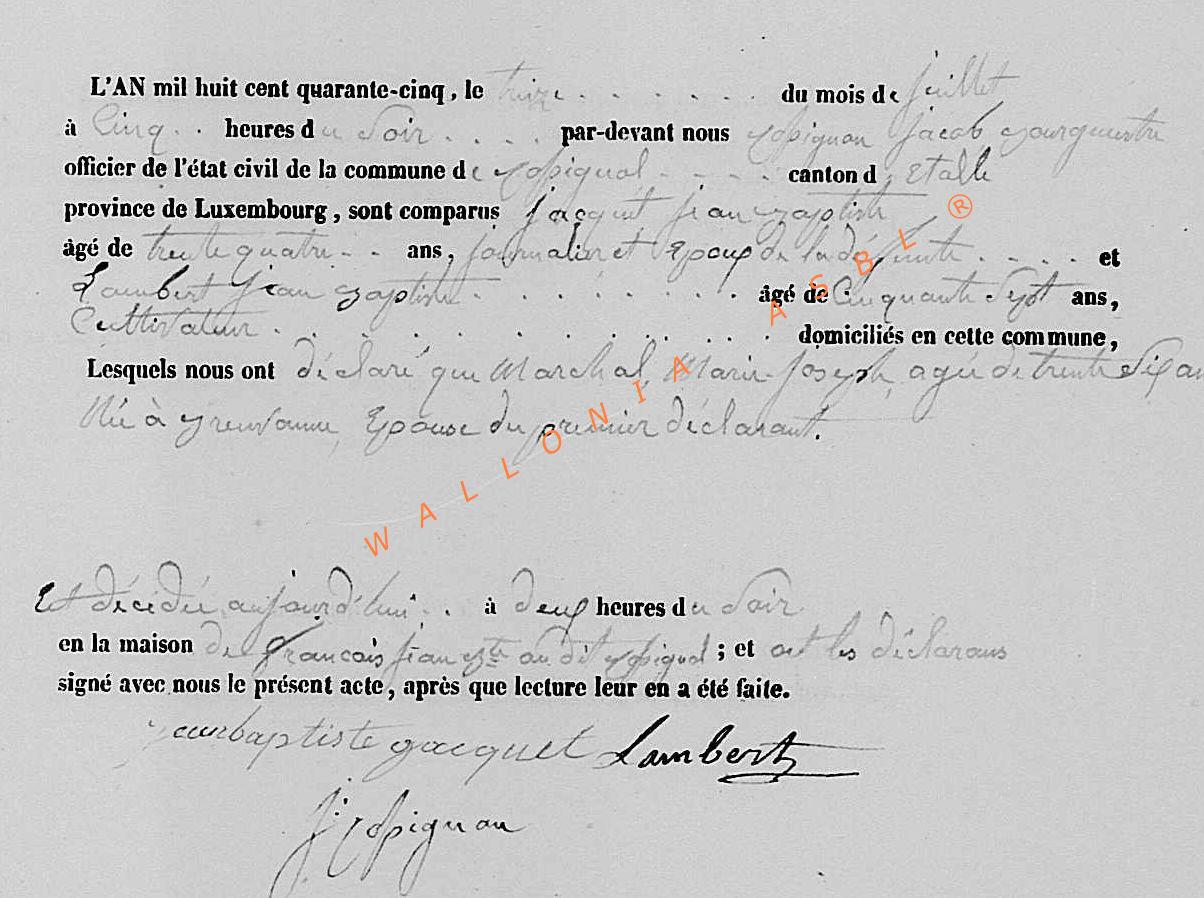 L'AN mil huit cent quarante-cinq, le treize . . . . . . du mois de juillet
à Cinq . . heures du Soir . . . . par-devant nous Jacob Bourguemestre
officier de l'état civil de la commune de . . . . canton d'Etalle
province de Luxembourg, sont comparus Jacquet Jean Baptiste
âgé de trente quatre . . ans, journalier et Epoux de la défunte . . . . et
Lambert Jean Baptiste . . . . . . . . âgé de Cinquante Sept ans,
Cultivateur . . . . . . . . . . . domiciliés en cette commune,
Lesquels nous ont déclaré que Marchal, Marie-Joseph, agée de trente Six an
Née à Epouse du premier déclarant.
Est décédée aujourd'hui . . à deux heures du Soir
en la maison de François Jean Bte au dit ; et ont les déclarans
signé avec nous le présent acte, après que lecture leur en a été faite.
jeanbaptiste jacquet Lambert
J.
WALLONIA ASBL ®